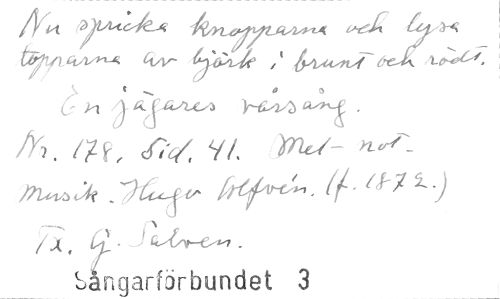 Nu spricka knopparna och lysa
topparna av björk i brunt och rödt.
En jägares vårsång.
Nr. 178. Sid. 41. Mel- not-
musik. Hugo Alfvén. (f. 1872.)
Tx. G. Salven.
Sångarförbundet 3